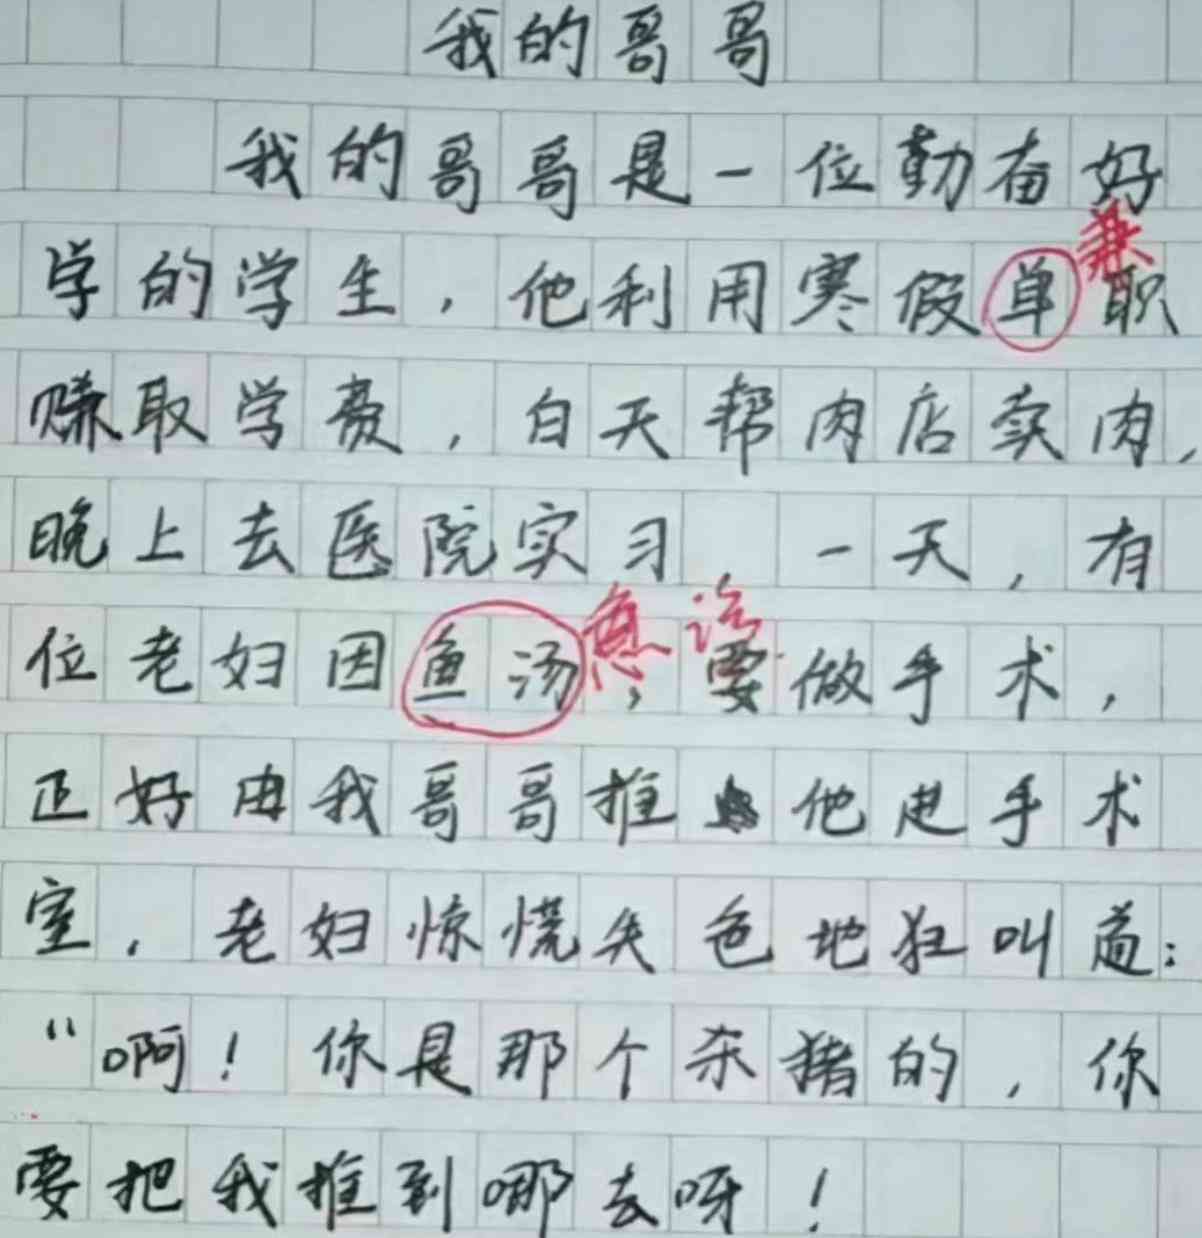 我的哥哥
我的哥哥是一位勤奋好
学的学生，他利用寒假单职
兼
赚取学费，白天帮肉店卖肉，
晚上去医院实习，一天，有
位老妇因鱼汤，要做手术，
急诊
正好由我哥哥推他进手术
室，老妇惊慌失色地狂叫道：
“啊！你是那个杀猪的，你
要把我推到哪去呀！